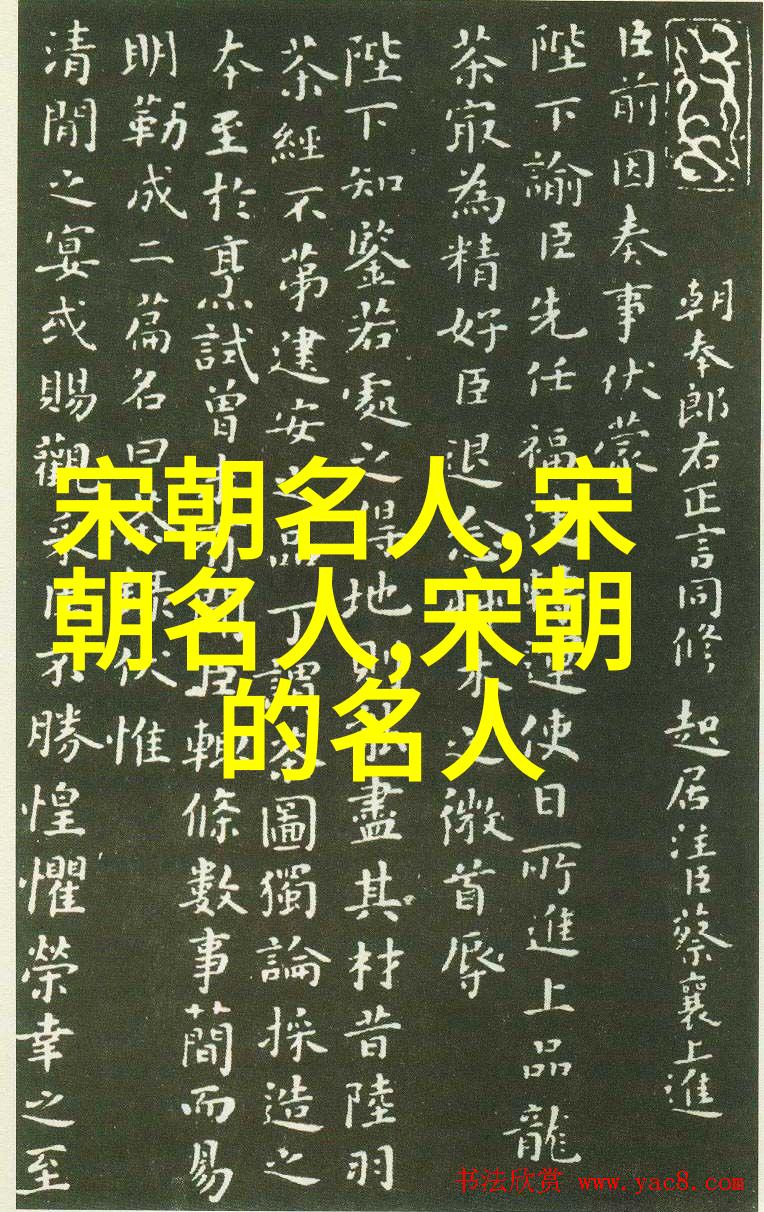 朝奉郎右正言同修起居注臣蔡襄上進
臣前因奏事伏蒙
陛下諭臣先任福建轉運使日所進上品龍
茶最為精好臣退念草木之微首辱
陛下知鑒若處之得地則能盡其材昔陸羽
茶經不第建安之品丁謂茶圖獨論採造之
本至於烹試曾未有聞臣輒條數事簡而易
明勒成二篇名曰茶錄伏惟
清閒之宴或賜觀采臣不勝惶懼榮幸之至
宋朝名人,宋
朝名人,宋朝
的名人
书法欣赏 www.yac8.com